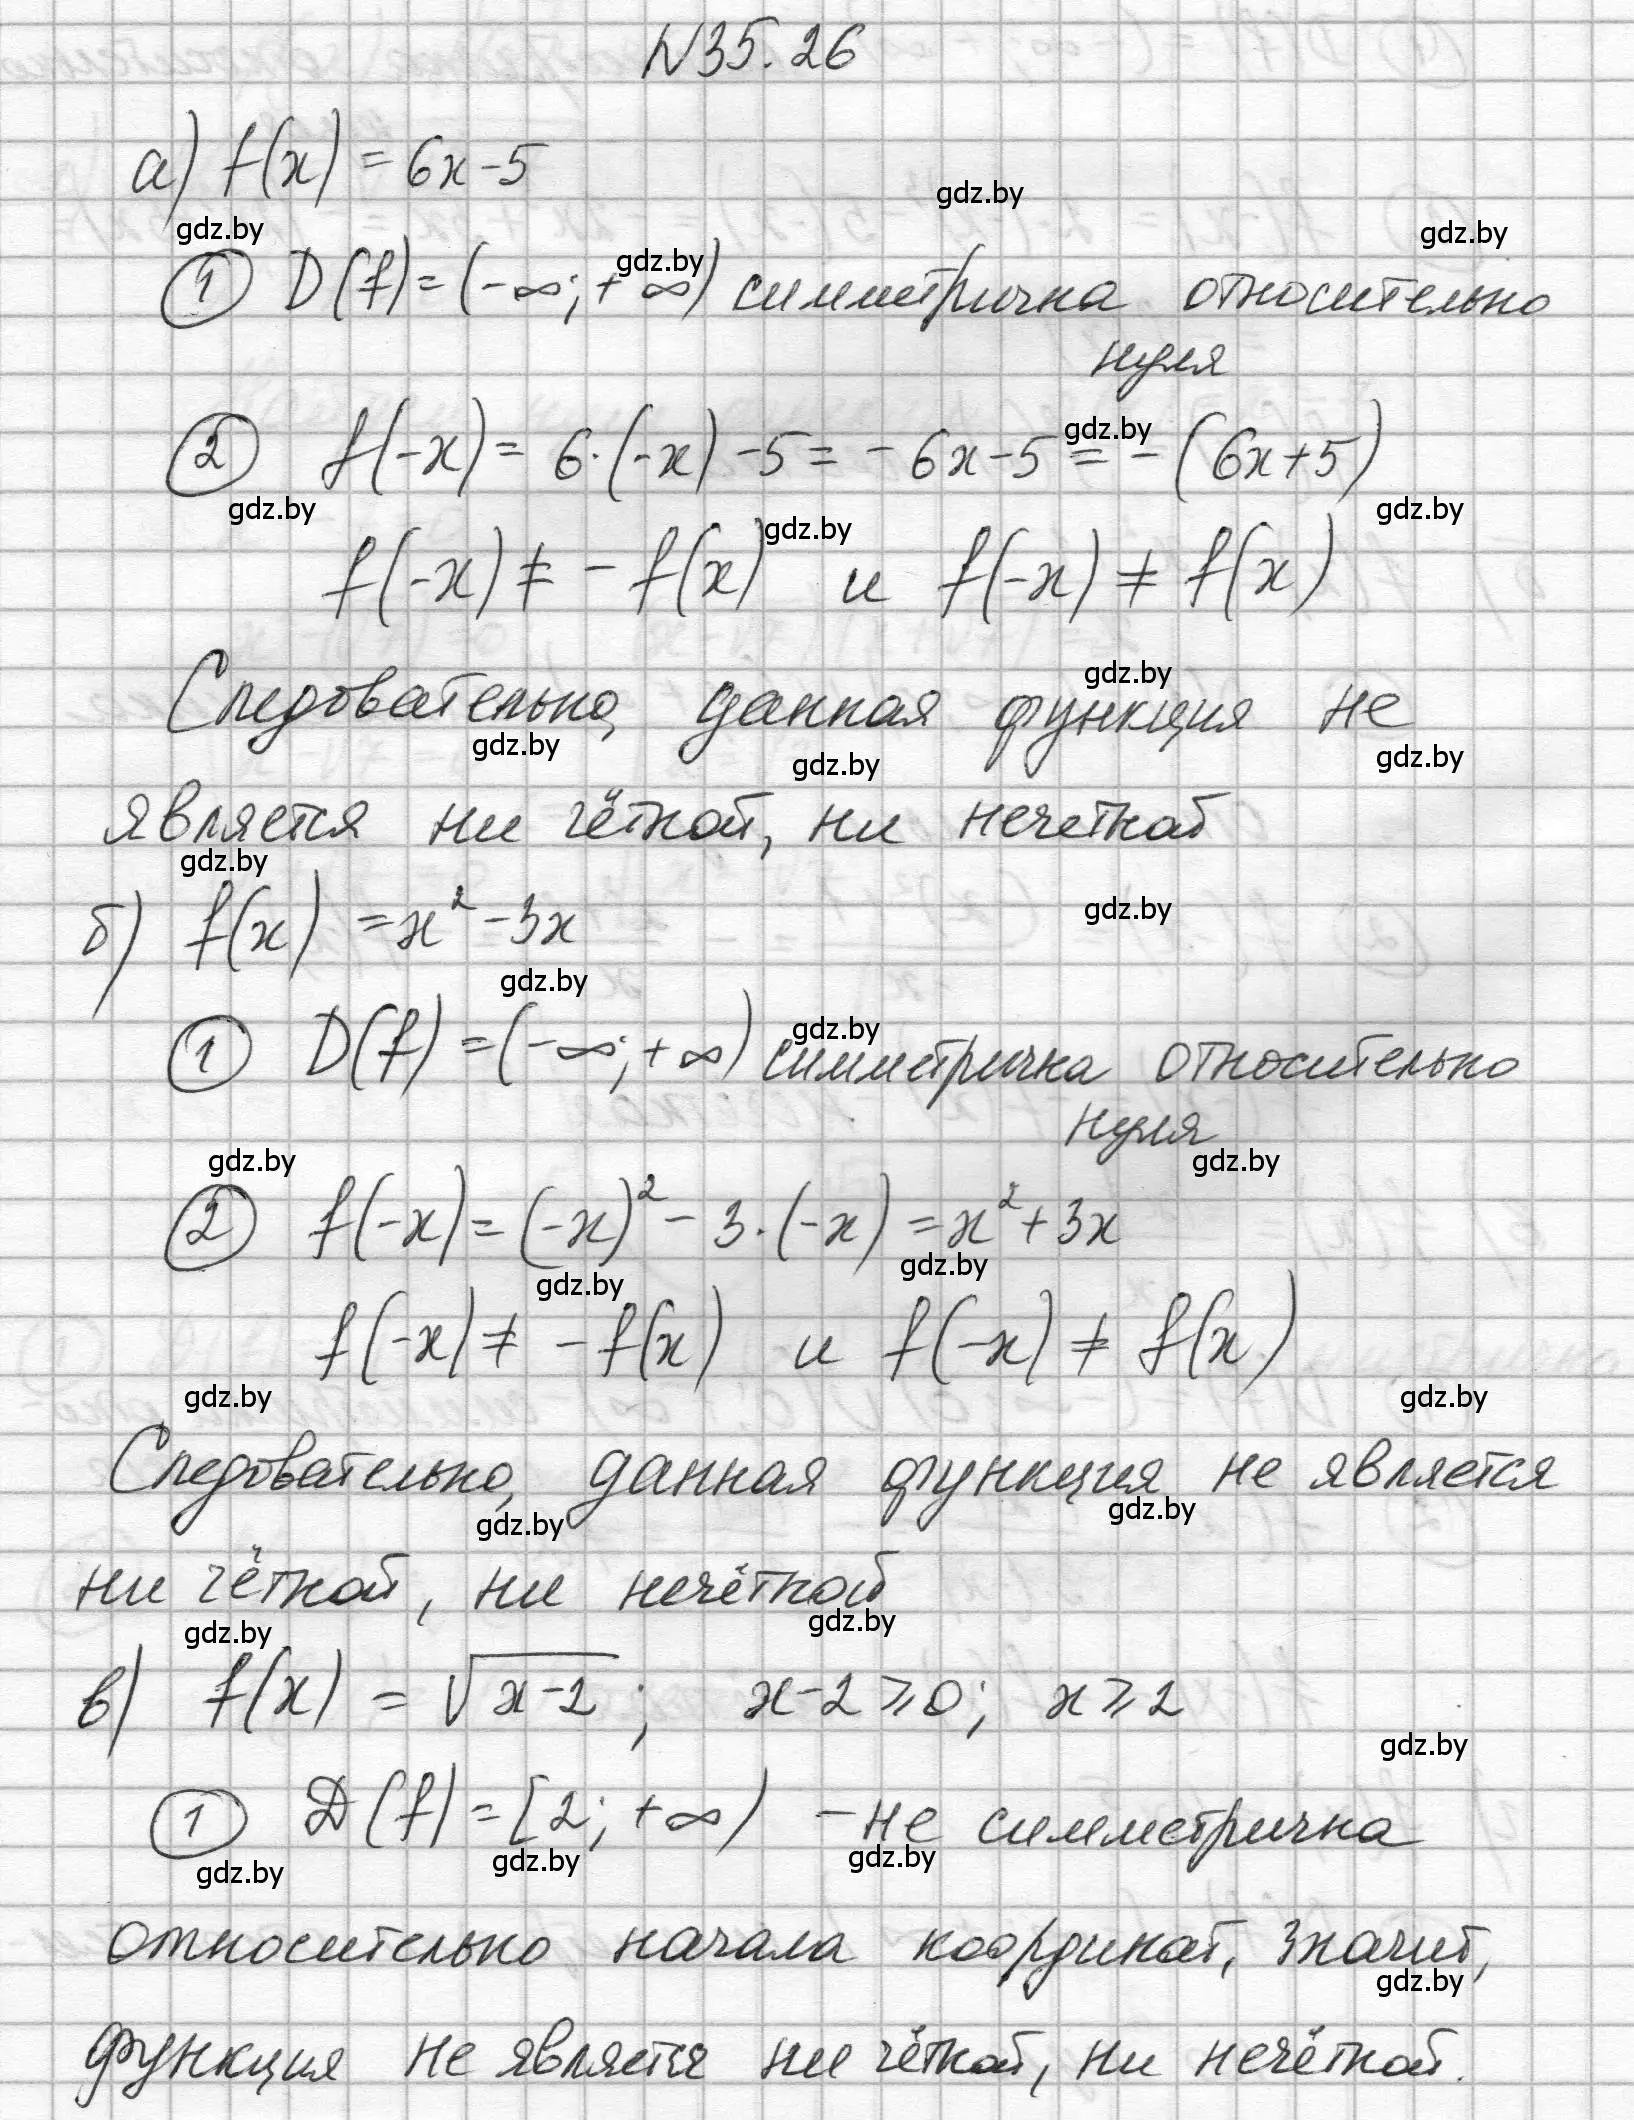 N35.26
а) f(x) = 6x-5
gdz.by
gdz.by gdz.by
① D(f)=(-∞;+∞) симметрична относительно
gdz.by
нуля
② f(-x)= 6·(-x)-5= -6x-5= -(6x+5)
gdz.by
gdz.by gdz.by
gdz.by
f(-x)≠ -f(x) и f(-x)≠ f(x)
gdz.by
Следовательно, данная функция не
gdz.by gdz.by gdz.by
является ни чёткой, ни нечеткой
gdz.by
б) f(x) =x²-3x
gdz.by
gdz.by
gdz.by
① D(f)=(-∞;+∞) симметрична относительно
нуля
gdz.by gdz.by
② f(-x)=(-x)²-3·(-x)=x²+3x
gdz.by gdz.by
f(-x)≠ -f(x) и f(-x)≠ f(x)
gdz.by gdz.by
Следовательно, данная функция не является
gdz.by gdz.by
ни чёткой, ни нечёткой
gdz.by gdz.by
в) f(x) = √x-2; x-2⩾0; x⩾2
gdz.by
① D(f)=[2;+∞) -не симметрична
gdz.by gdz.by gdz.by
относительно начала координат, значит,
gdz.by
функция не является ни чёткой, ни нечёткой.